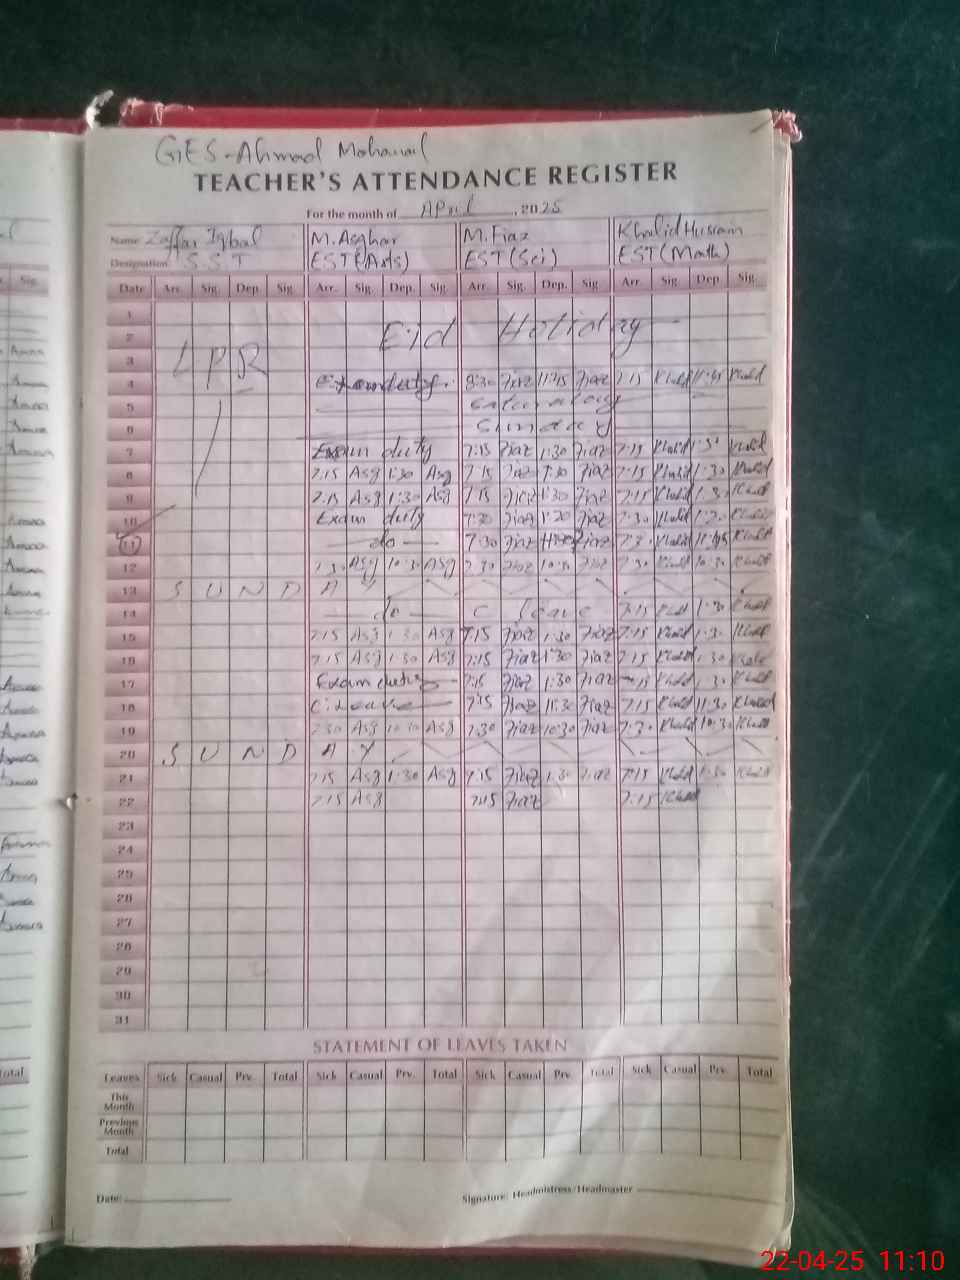 GES-Ahmad
TEACHER'S ATTENDANCE REGISTER
For the month of April, 2025
Name Zaffar Iqbal M. Asghar M. Fiaz Khalid Hussain
Designation S.S.T EST(Arts) EST(Sci) EST(Math)
Date Arr. Sig. Dep. Sig. Arr. Sig. Dep. Sig. Arr. Sig. Dep. Sig. Arr. Sig. Dep. Sig.
1
2 Eid Holiday
3 LPR
4 8:30 Fiaz 11:45 Fiaz 7:15 Khalid 11:45 Khalid
5 Saturday
6 Sunday
7 Exam duty 7:15 Fiaz 1:30 Fiaz 7:15 Khalid 1:30 Khalid
8 7:15 Asg 1:30 Asg 7:15 Fiaz 1:30 Fiaz 7:15 Khalid 1:30 Khalid
9 7:15 Asg 1:30 Asg 7:15 Fiaz 1:30 Fiaz 7:15 Khalid 1:30 Khalid
10 Exam duty 7:30 Fiaz 1:20 Fiaz 7:30 Khalid 1:20 Khalid
11 do 7:30 Fiaz Fiaz 7:30 Khalid 11:45 Khalid
12 7:30 Asg 10:30 Asg 7:30 Fiaz 10:30 Fiaz 7:30 Khalid 10:30 Khalid
13 S U N D A Y
14 do C leave 7:15 Khalid 1:30 Khalid
15 7:15 Asg 1:30 Asg 7:15 Fiaz 1:30 Fiaz 7:15 Khalid 1:30 Khalid
16 7:15 Asg 1:30 Asg 7:15 Fiaz 1:30 Fiaz 7:15 Khalid 1:30 Khalid
17 Exam duty 7:15 Fiaz 1:30 Fiaz 7:15 Khalid 1:30 Khalid
18 C. Leave 7:15 Fiaz 11:30 Fiaz 7:15 Khalid 11:30 Khalid
19 7:30 Asg 10:30 Asg 7:30 Fiaz 10:30 Fiaz 7:30 Khalid 10:30 Khalid
20 S U N D A Y
21 7:15 Asg 1:30 Asg 7:15 Fiaz 1:30 Fiaz 7:15 Khalid 1:30 Khalid
22 7:15 Asg 7:15 Fiaz 7:15 Khalid
23
24
25
26
27
28
29
30
31
STATEMENT OF LEAVES TAKEN
Leaves Sick Casual Prv. Total Sick Casual Prv. Total Sick Casual Prv. Total Sick Casual Prv. Total
This Month
Previous Month
Total
Date: Signature: Headmistress/Headmaster
22-04-25 11:10